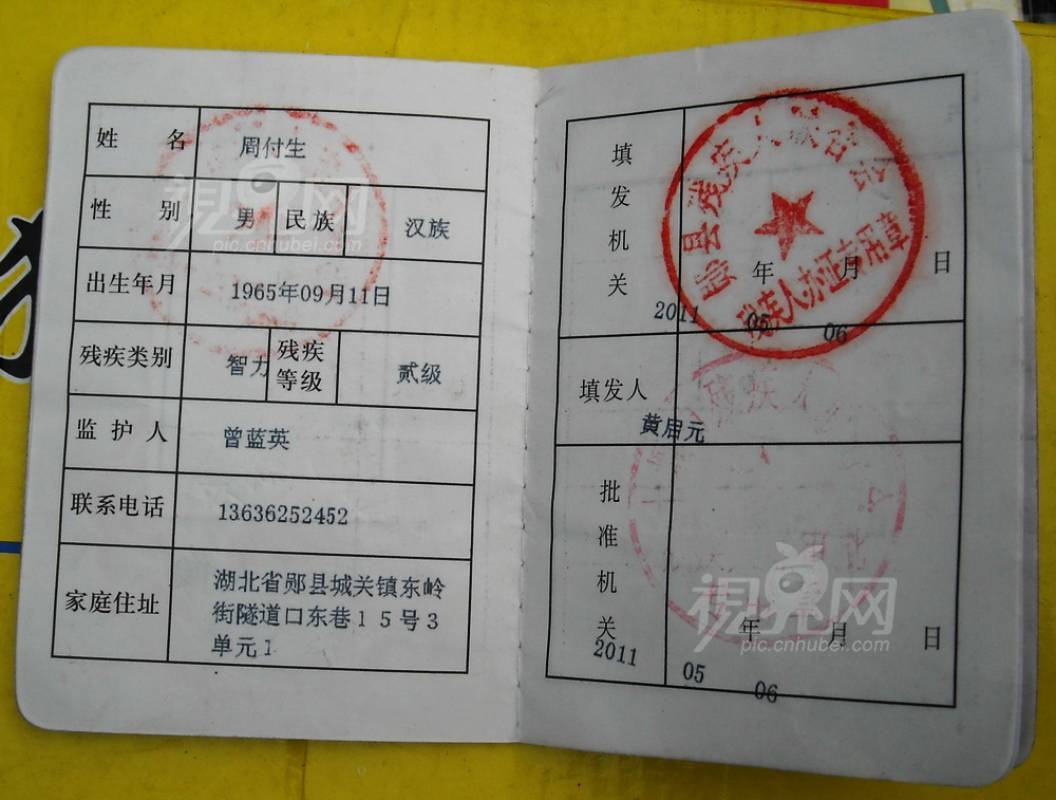 姓 名 周付生
性 别 男 民族 汉族
出生年月 1965年09月11日
残疾类别 智力 残疾等级 贰级
监护人 曾蓝英
联系电话 13636252452
家庭住址 湖北省郧县城关镇东岭
街隧道口东巷15号3
单元1
填发机关
郧县残疾人联合会
残疾人办证专用章
年 月 日
2011 05 06
填发人
黄启元
批准机关
年 月 日
2011 05 06
视界网
pic.cnhubei.com
视界网
pic.cnhubei.com